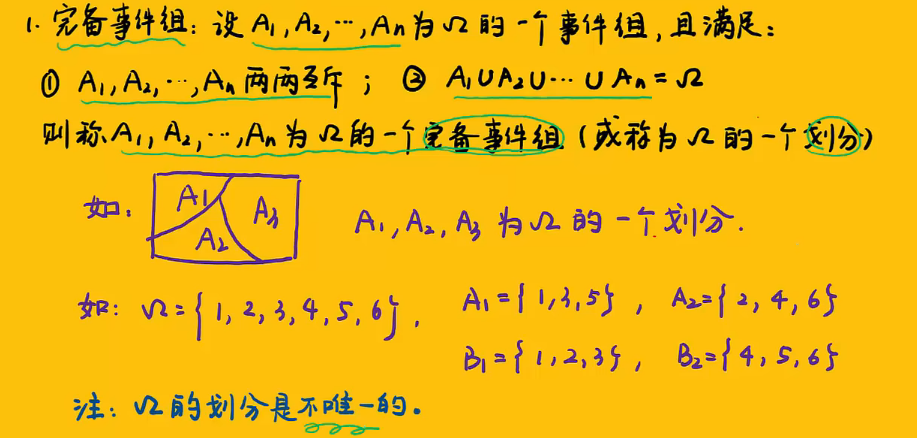 1. 完备事件组：设 A₁, A₂, ⋯, Aₙ 为 Ω 的一个事件组，且满足：
① A₁, A₂, ⋯, Aₙ 两两互斥； ② A₁∪A₂∪⋯∪Aₙ = Ω
则称 A₁, A₂, ⋯, Aₙ 为 Ω 的一个完备事件组（或称为 Ω 的一个划分）
如： A₁ A₂ A₃ A₁, A₂, A₃ 为 Ω 的一个划分.
如： Ω = { 1, 2, 3, 4, 5, 6 }, A₁ = { 1, 3, 5 }, A₂ = { 2, 4, 6 }
B₁ = { 1, 2, 3 }, B₂ = { 4, 5, 6 }
注： Ω 的划分是不唯一的。